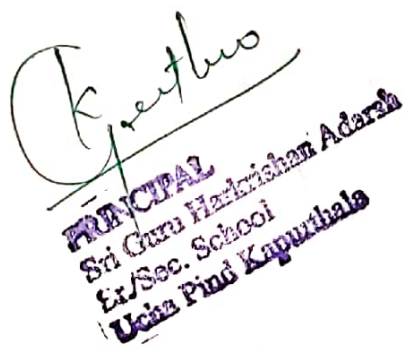 PRINCIPAL
Sri Guru Harkrishan Adarsh
Sr./Sec. School
Ucha Pind Kapurthala